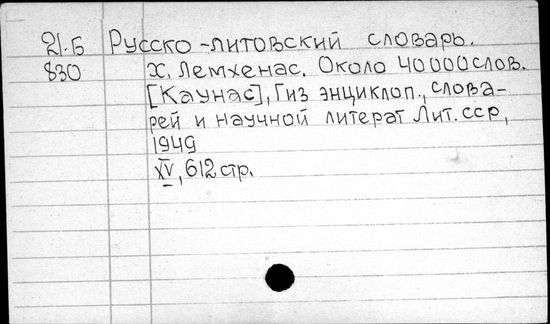 21.Б Русско-литовский словарь.
830 Х. Лемхенас. Около 40000 слов.
[Каунас], Гиз энциклоп., слова-
рей и научной литерат Лит. сср,
1949
XV, 612 стр.